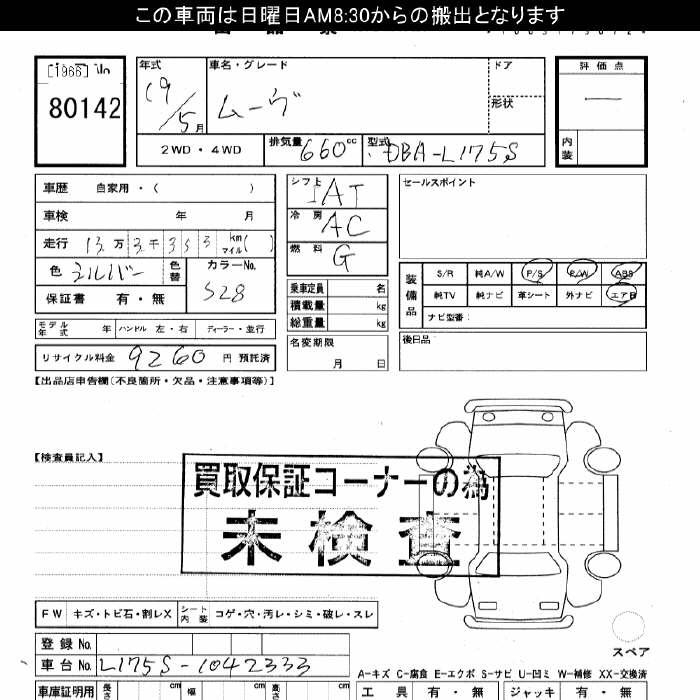 この車両は日曜日AM8:30からの搬出となります
[1966]
80142
年式 19/5月
車名・グレード ムーヴ
ドア
形状
評価点 —
内装
2WD・4WD
排気量 660cc
型式 DBA-L175S
車歴 自家用・( )
車検 年 月
走行 13万3千353 km マイル( )
色 シルバー 色替
カラーNo. S28
保証書 有・無
シフト IAT
冷房 AC
燃料 G
乗車定員 名
積載量 kg
総重量 kg
セールスポイント
装備品
S/R 純A/W P/S P/W ABS
純TV 純ナビ 革シート 外ナビ エアB
ナビ型番:
モデル年式 年 ハンドル 左・右 ディーラー・並行
名変期限 月 日
後日品
リサイクル料金 9260 円 預託済
【出品店申告欄(不良箇所・欠品・注意事項等)】
【検査員記入】
買取保証コーナーの為
未検査
FW キズ・トビ石・割レX シート内装 コゲ・穴・汚レ・シミ・破レ・スレ
スペア
登録No.
車台No. L175S-1042333
A-キズ C-腐食 E-エクボ S-サビ U-凹ミ W-補修 XX-交換済
車庫証明用 長さ cm 幅 cm 高さ cm
工具 有・無 ジャッキ 有・無